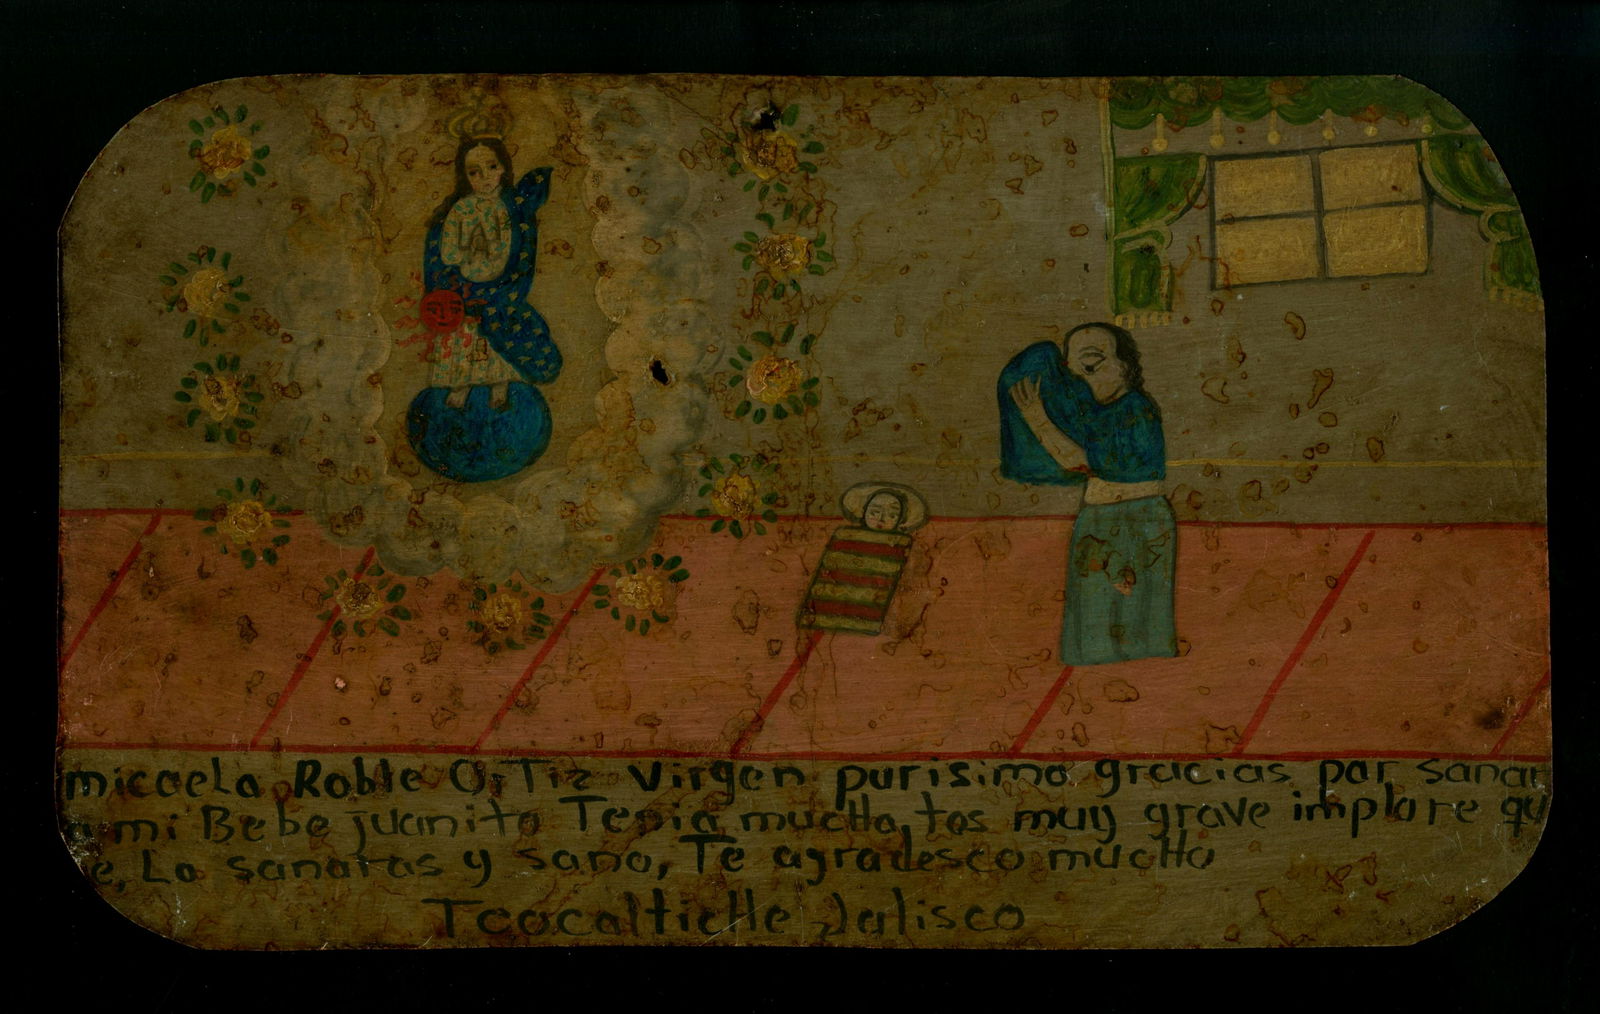 micaela Roble OrTiz Virgen purisima gracias par sanar
a mi Bebe juanito Tenia mucho, tos muy grave implore qu
e, Lo sanaras y sano, Te agradesco mucho
Teocaltiche Jalisco